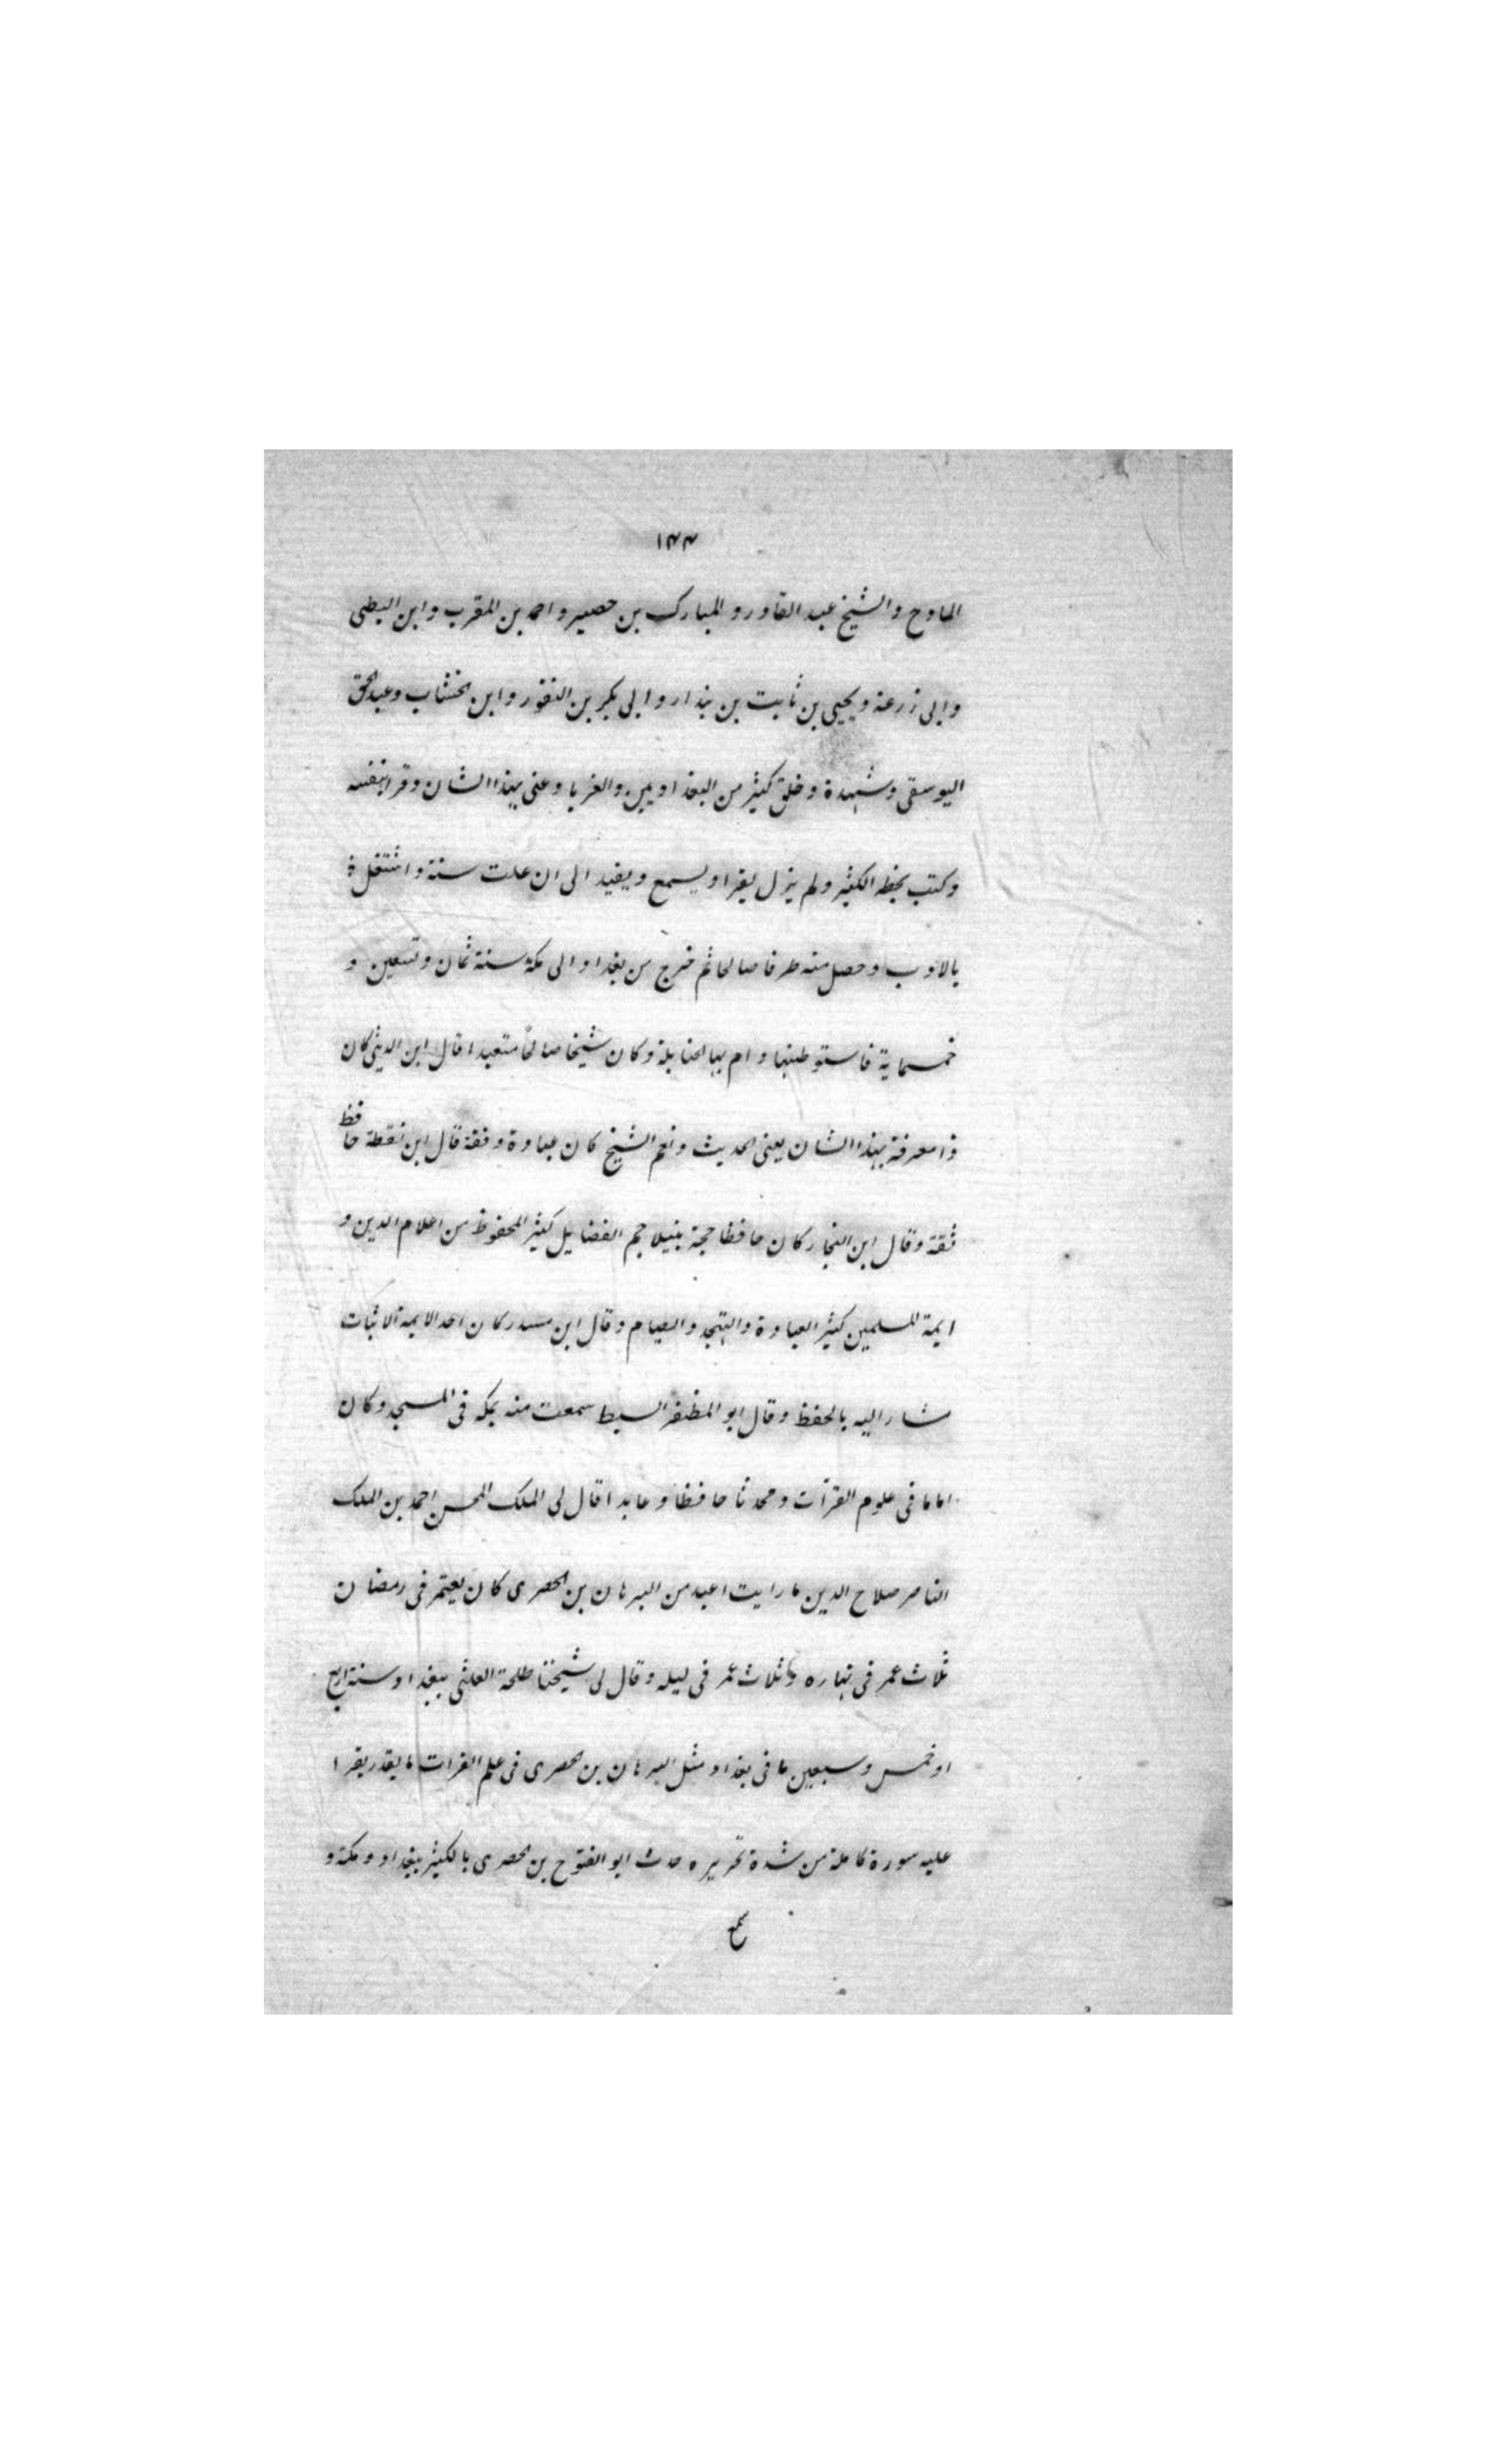 ١٤٤
المادح والشيخ عبد القادر و المبارك بن حصير و احمد بن المقرب و ابن البطى
و ابى زرعة و يحيى بن ثابت بن بندار و ابى بكر بن النقور و ابن الخشاب و عبد الحق
اليوسفى و شهدة و خلق كثير من البغداديين و الغربا و عنى بهذا الشان و قرا بنفسه
و كتب بخطه الكثير و لم يزل يقرا و يسمع و يفيد الى ان علت سنة و اشتغل ة
بالادب و حصل منه طرفا صالحا ثم خرج من بغداد الى مكة سنة ثمان و تسعين و
خمسماية فاستوطنها و ام بها الحنابلة و كان شيخا صالحًا متعبدا قال ابن الدبيثى كان
ذا معرفة بهذا الشان يعنى الحديث و نعم الشيخ كان عبادة و ثقة قال ابن نقطة حافظ
ثقة و قال ابن النجار كان حافظا حجة نبيلا جم الفضايل كثير المحفوظ من اعلام الدين و
ايمة المسلمين كثير العبادة و التهجد و الصيام و قال ابن مسدر كان احد الايمة الاثبات
مشار اليه بالحفظ و قال ابو المظفر السبط سمعت منه بمكه فى المسجد و كان
اماما فى علوم القرآت و محدثا حافظا و عابدا قال لى الملك المحسن احمد بن الملك
الناصر صلاح الدين ما رايت اعبد من البرهان بن الحصرى كان يعتمر فى رمضان
ثلاث عمر فى نهاره و ثلاث عمر فى ليله و قال لى شيخنا طلحة العلثى ببغداد سنة اربع
او خمس و سبعين ما فى بغداد مثل البرهان بن الحصرى فى علم القرات ما يقدر يقرا
عليه سورة كاملة من شدة تحريره حدث ابو الفتوح بن الحصرى بالكثير ببغداد و مكة و
سمع